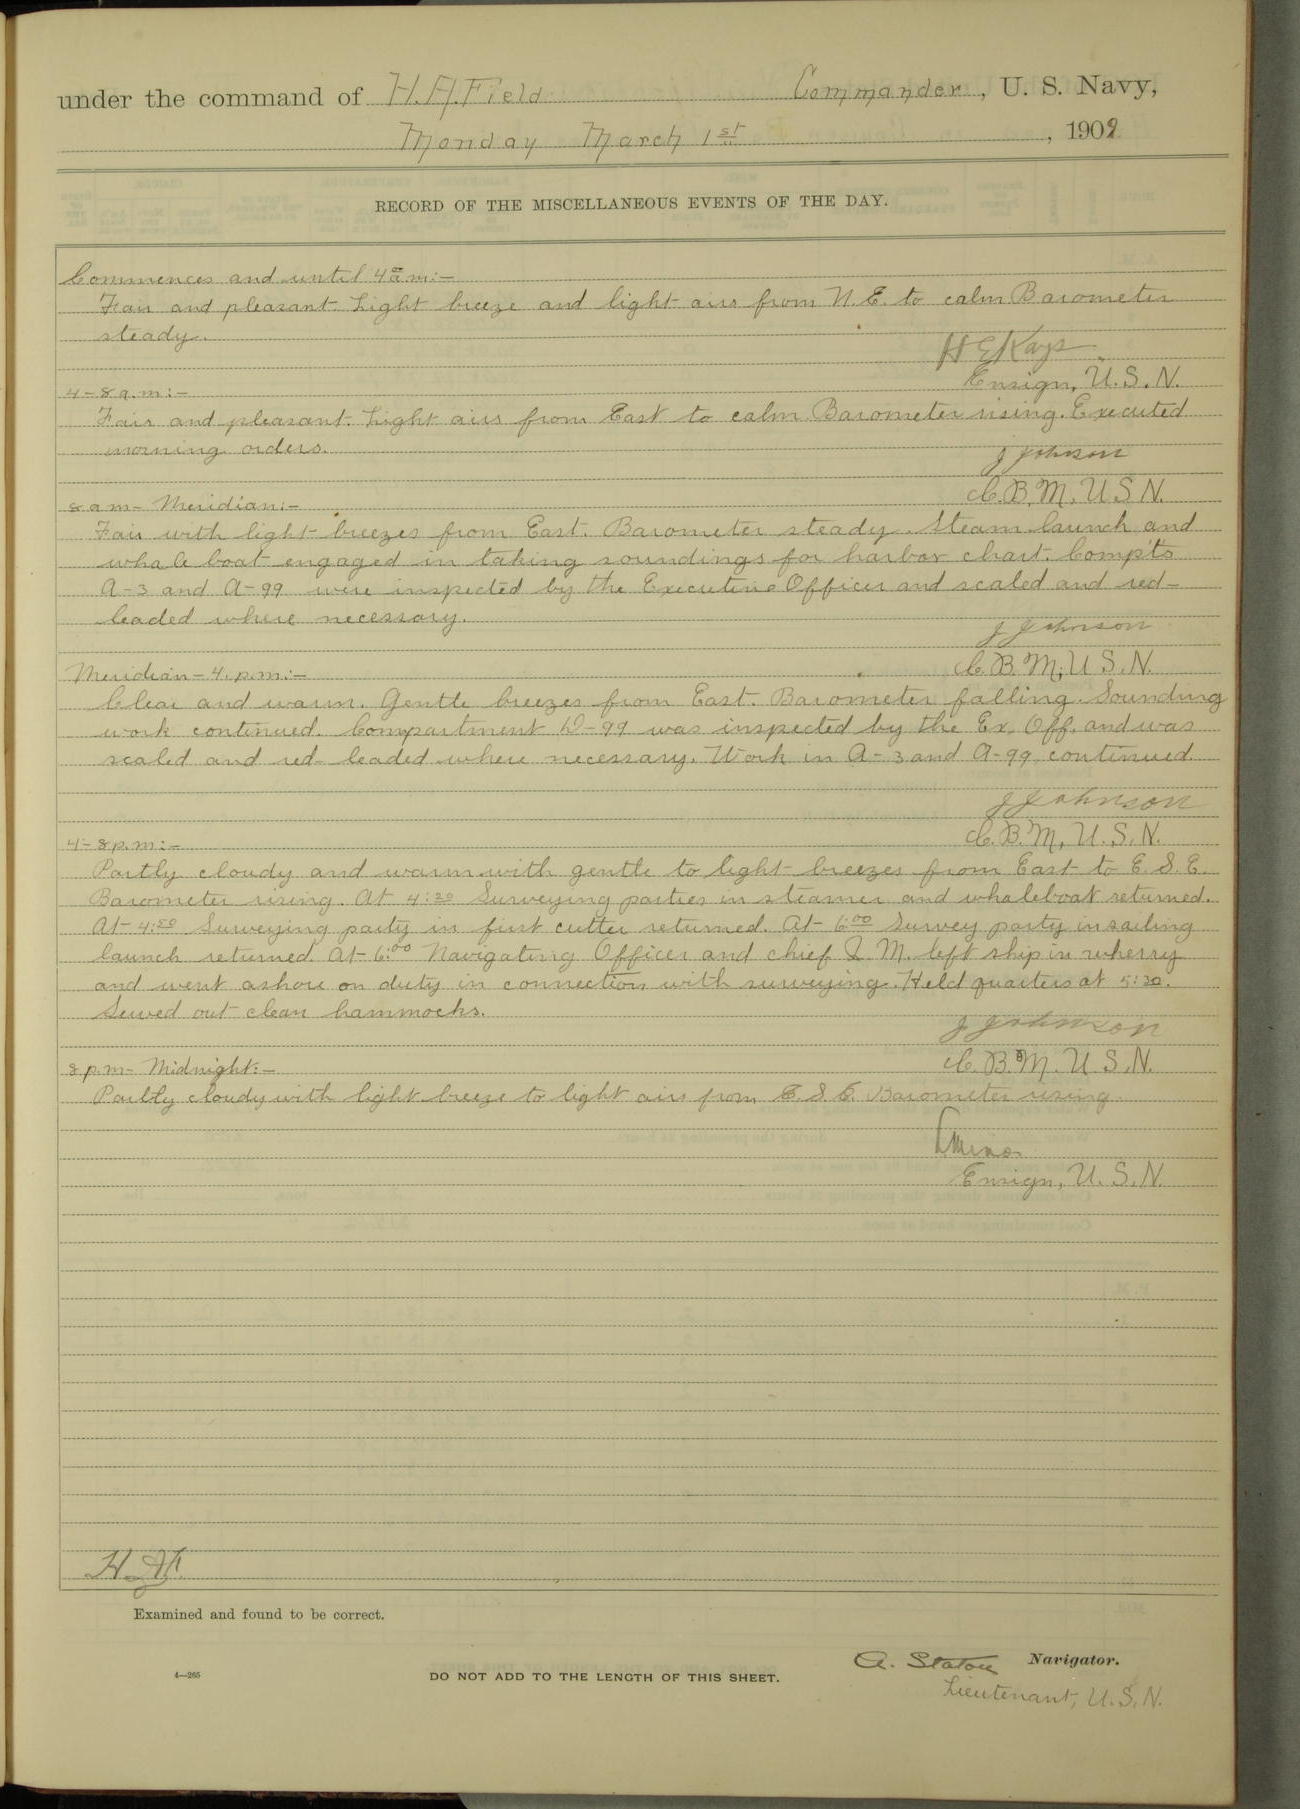 under the command of H.A.Field Commander, U. S. Navy,
Monday March 1st, 1909
RECORD OF THE MISCELLANEOUS EVENTS OF THE DAY.
Commences and until 4 a.m:-
Fair and pleasant. Light breeze and light airs from N.E. to calm Barometer
steady.
H E Kays
Ensign, U.S.N.
4-8 a.m:-
Fair and pleasant. Light airs from East to calm. Barometer rising. Executed
morning orders.
J Johnson
C.B.M. U S N.
8 a m- Meridian:-
Fair with light breezes from East. Barometer steady. Steam launch and
whale boat engaged in taking soundings for harbor chart. Compt's
A-3 and A-99 were inspected by the Executive Officer and scaled and red-
leaded where necessary.
J Johnson
C.B.M, U S.N.
Meridian-4. p.m.:-
Clear and warm. Gentle breezes from East. Barometer falling. Sounding
work continued. Compartment D-99 was inspected by the Ex. Off. and was
scaled and red-leaded where necessary. Work in A-3 and A-99 continued.
J Johnson
C.B.M, U.S.N.
4-8 p.m:-
Partly cloudy and warm with gentle to light breezes from East to E.S.E.
Barometer rising. At 4:20 Surveying parties in steamer and whaleboat returned.
At 4:50 Surveying party in first cutter returned. At 6:00 Survey party in sailing
launch returned. At 6:00 Navigating Officer and chief Q.M. left ship in wherry
and went ashore on duty in connection with surveying. Held quarters at 5:30.
Served out clean hammocks.
J Johnson
C.B.M. U S.N.
8 p.m- Midnight:-
Partly cloudy with light breeze to light airs from E.S.E. Barometer rising.
Ensign, U.S.N.
H.A.F.
Examined and found to be correct.
A. Staton Navigator.
4-265
DO NOT ADD TO THE LENGTH OF THIS SHEET.
Lieutenant, U.S.N.